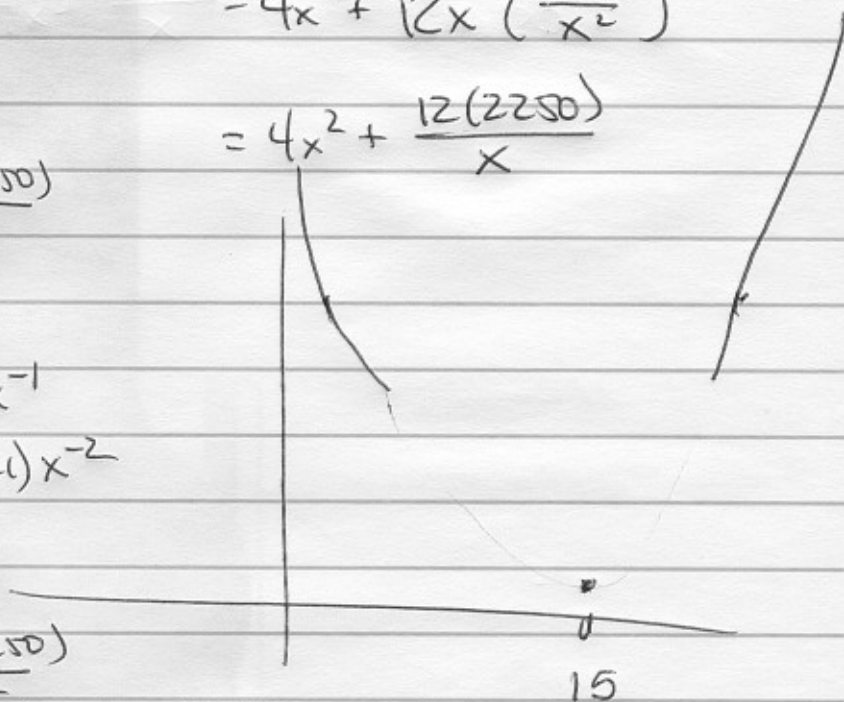 - 4x + 12x ( / x² )
= 4x² + 12(2250) / x
50)
x⁻¹
1)x⁻²
50)
15